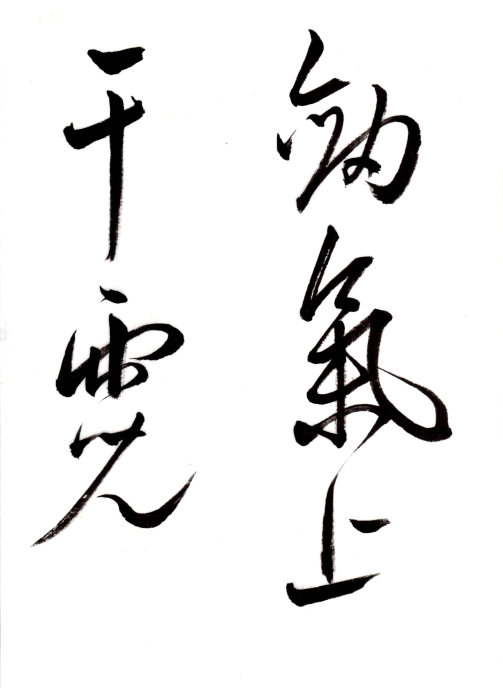 劒氣上
干霓